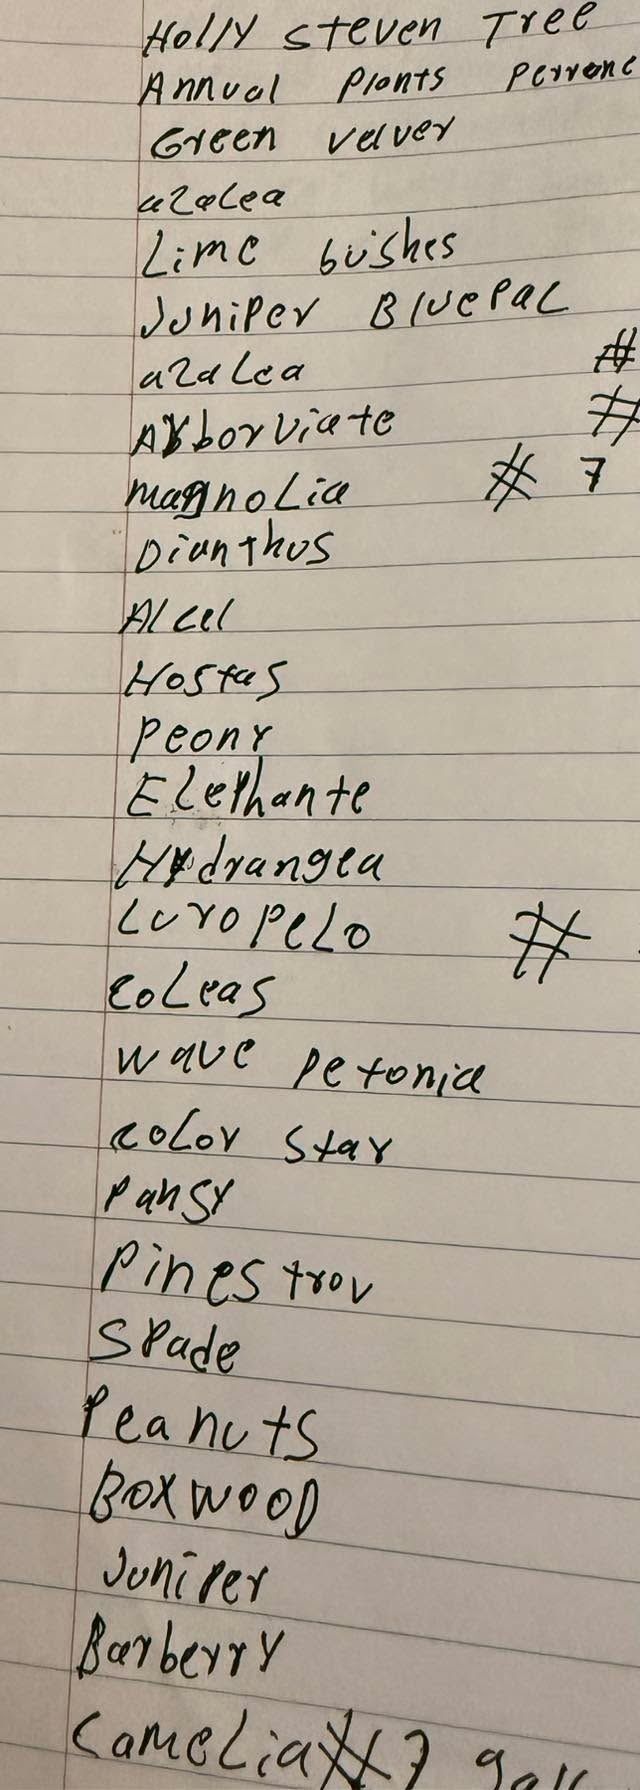 Holly Steven Tree
Annual Plants Perrene
Green velver
azalea
Lime bushes
Juniper Bluepac
azalea #
Arborviate #
magnolia # 7
Dianthus
Alcel
Hostas
Peony
Elephante
Hydrangea
Luropelo #
coleas
wave petonia
color star
Pansy
Pinestrov
Spade
Peanuts
BOXWOOD
Juniper
Barberry
camelia # 7 gall